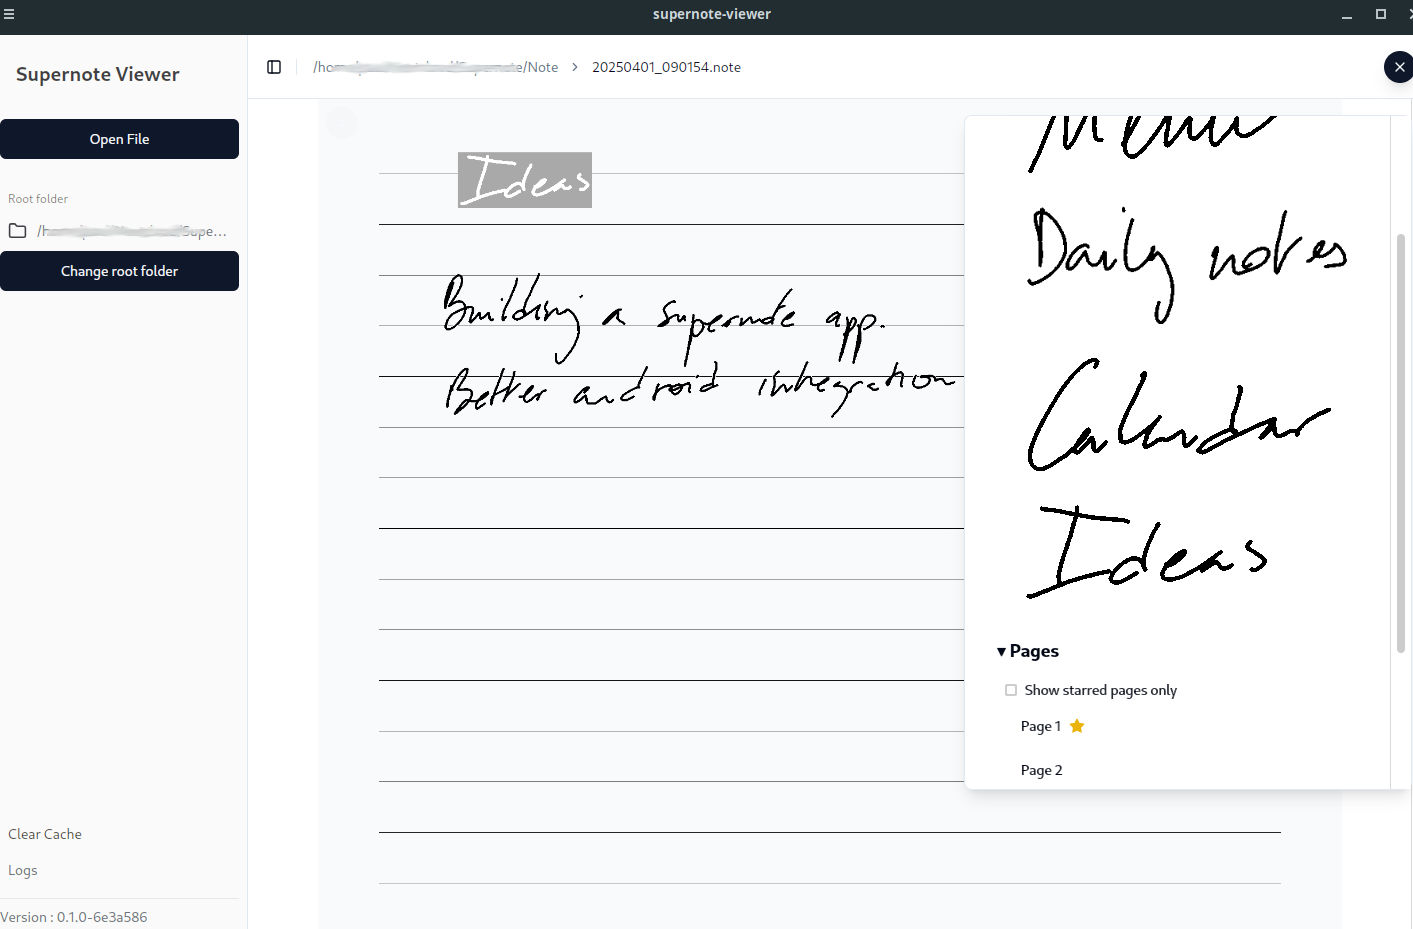 supernote-viewer
Supernote Viewer
Open File
Root folder
Supe...
Change root folder
Clear Cache
Logs
Version : 0.1.0-6e3a586
/Note > 20250401_090154.note
Ideas
Building a supernote app.
Better android integration
Menu
Daily notes
Calendar
Ideas
▾ Pages
Show starred pages only
Page 1
Page 2